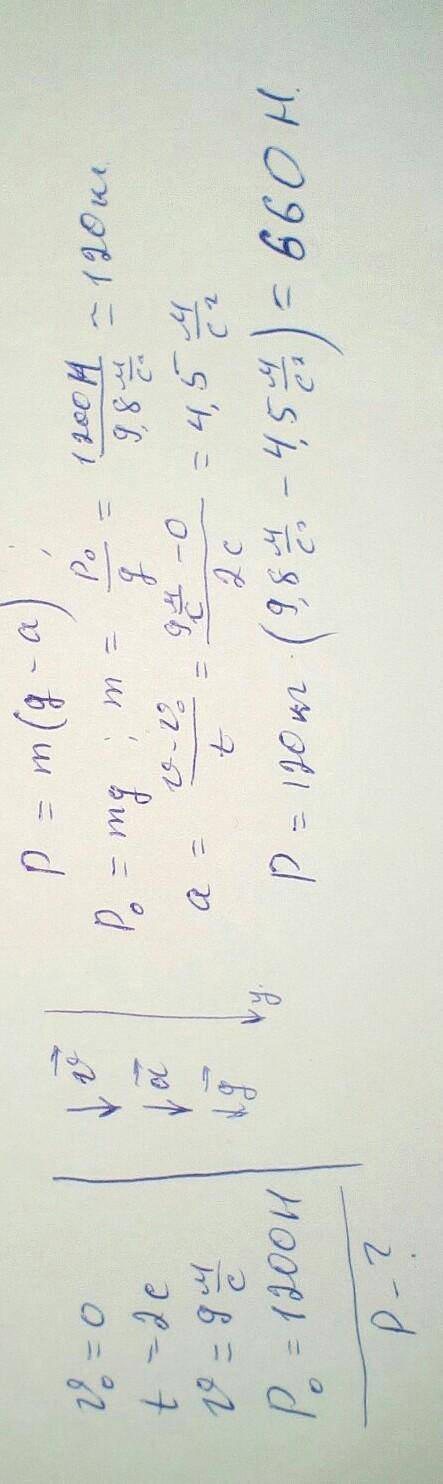 v₀ = 0
t = 2c
v = 9 м/с
P₀ = 1200Н
P - ?
v⃗
a⃗
g⃗
y
P = m(g - a)
P₀ = mg ; m = P₀/g = 1200Н / 9,8 м/с² = 120кг
a = (v - v₀)/t = (9 м/с - 0)/2c = 4,5 м/с²
P = 120кг · (9,8 м/с² - 4,5 м/с²) = 660 Н.